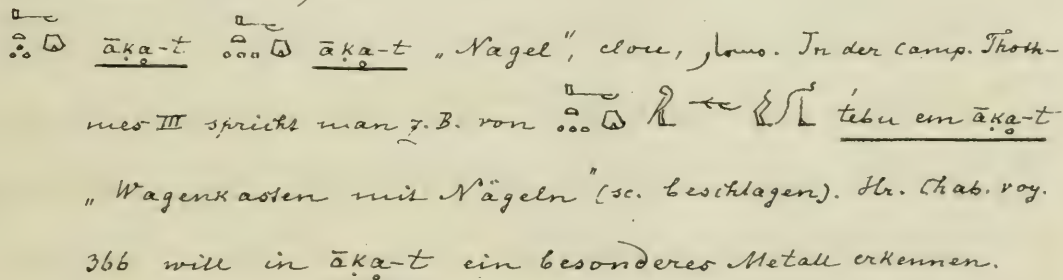 āḳa-t āḳa-t „Nagel", clou, مسمار. In der camp. Thoth-
mes III spricht man z. B. von t́ebu em āḳa-t
„Wagenkasten mit Nägeln" (sc. beschlagen). Hr. Chab. voy.
366 will in āḳa-t ein besonderes Metall erkennen.